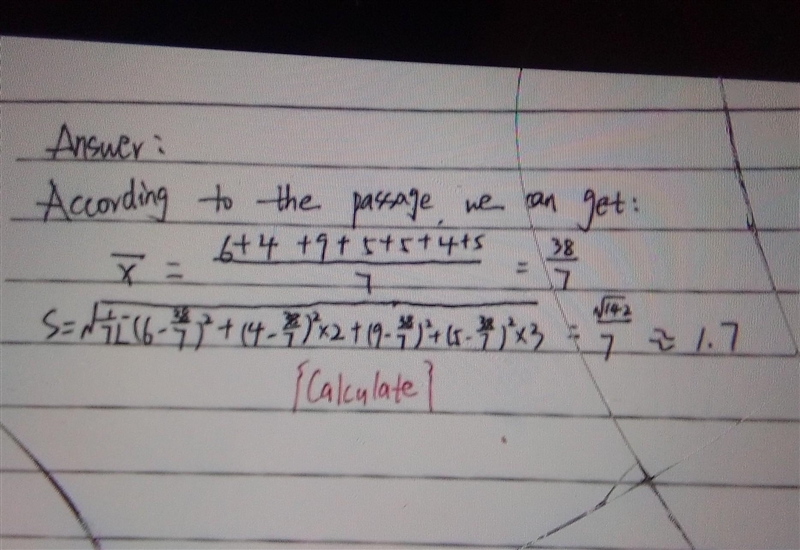 Answer:
According to the passage, we can get:
x̄ = (6+4+9+5+5+4+5)/7 = 38/7
S=√(1/7[(6-38/7)²+(4-38/7)²×2+(9-38/7)²+(5-38/7)²×3 = √142/7 ≈ 1.7
[Calculate]